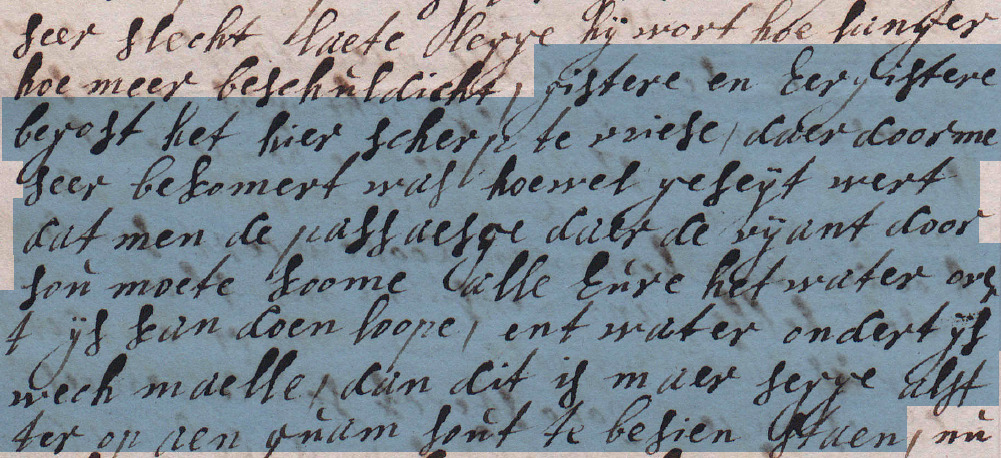 seer slecht laete legge hij wort hoe langer
hoe meer beschuldicht, gistere en Eergistere
begost het hier scherp te vriese, daer door me
seer bekomert was hoewel geseijt wert
dat men de passaesge daer de vijant door
sou moete koome alle Eure het water over
t ijs kan doen loope, ent water ondert ijs
wech maelle, dan dit is maer segge alst
ter op aen quam sout te besien staen, nu